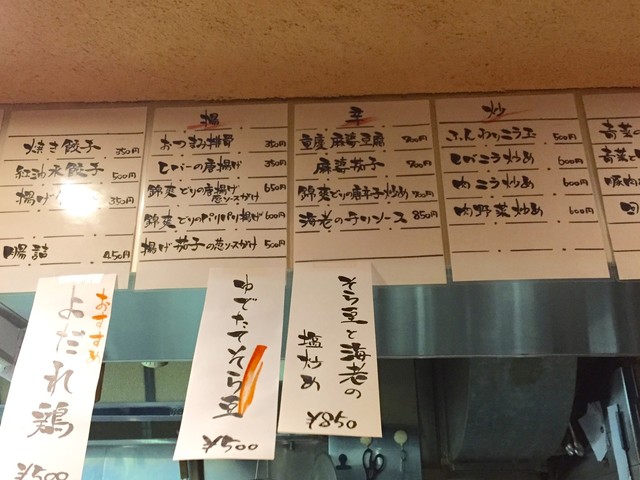 焼き餃子 350円
紅油水餃子 500円
揚げ 350円
腸詰 450円
揚
おつまみ排骨 350円
レバーの唐揚げ 350円
錦爽どりの唐揚げ葱ソースがけ 650円
錦爽どりのパリパリ揚げ 600円
揚げ茄子の葱ソースがけ 500円
辛
重慶麻婆豆腐 900円
麻婆茄子
錦爽どりの唐辛子炒め
海老のチリソース 850円
炒
ふんわりニラ玉 500円
レバニラ炒め 600円
肉ニラ炒め 600円
肉野菜炒め 600円
青菜
青菜
おすすめ
よだれ鶏
¥500
ゆでたてそら豆
¥500
そら豆と海老の
塩炒め
¥850